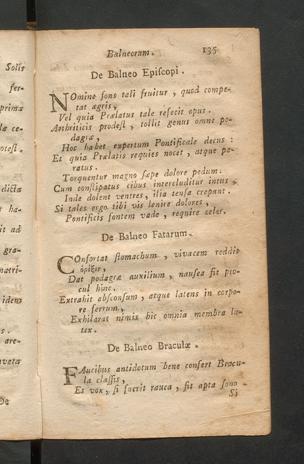 Solis
fer-
prima
ce-
otest.
dicta
ha-
it ad
gra-
natri-
idem
s.
are-
De
Balneorum. 135
De Balneo Episcopi.
NOmine fons tali fruitur, quod compe-
tat ægris,
Vel quia Prælatus tale refecit opus.
Arthriticis prodest, tollit genus omne po-
dagræ,
Hoc habet expertum Pontificale decus:
Et quia Prælatis requies nocet, atque pa-
ratus.
Torquentur magno sæpe dolore pedum:
Cum constipatus cibus intercluditur intus,
Inde dolent ventres, ilia tensa crepant.
Si tales ergo tibi vis lenire dolores,
Pontificis fontem vade, require celer.
De Balneo Fatarum.
COnfortat stomachum, vivacem reddit
Dat podagræ auxilium, nausea fit pro-
cul hinc.
Extrahit absconsum, atque latens in corpo-
re ferrum,
Exhilarat nimis hic omnia membra la-
tex.
De Balneo Braculæ.
FAucibus antidotum bene confert Bracu-
la classis,
Et vox, si fuerit rauca, fit apta sono
Si